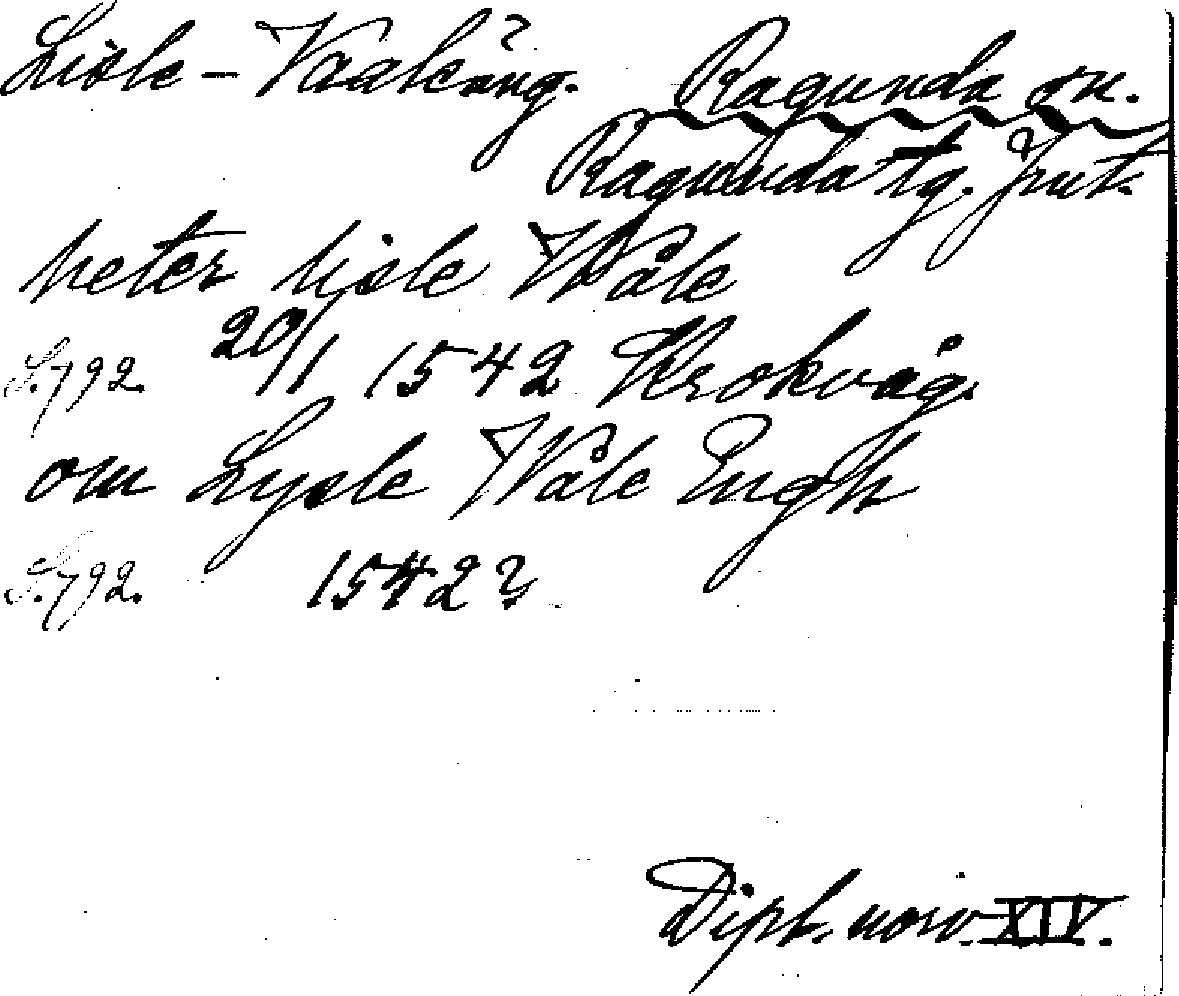 Lisle-Vaaleäng. Ragunda sn.
Ragunda tg. Jmt.
heter lisle Wåle
S. 792. 20/1 1542 Krokvåg.
om Lysle Wåle Engh
S. 792. 1542?
Dipl. norv. XIV.